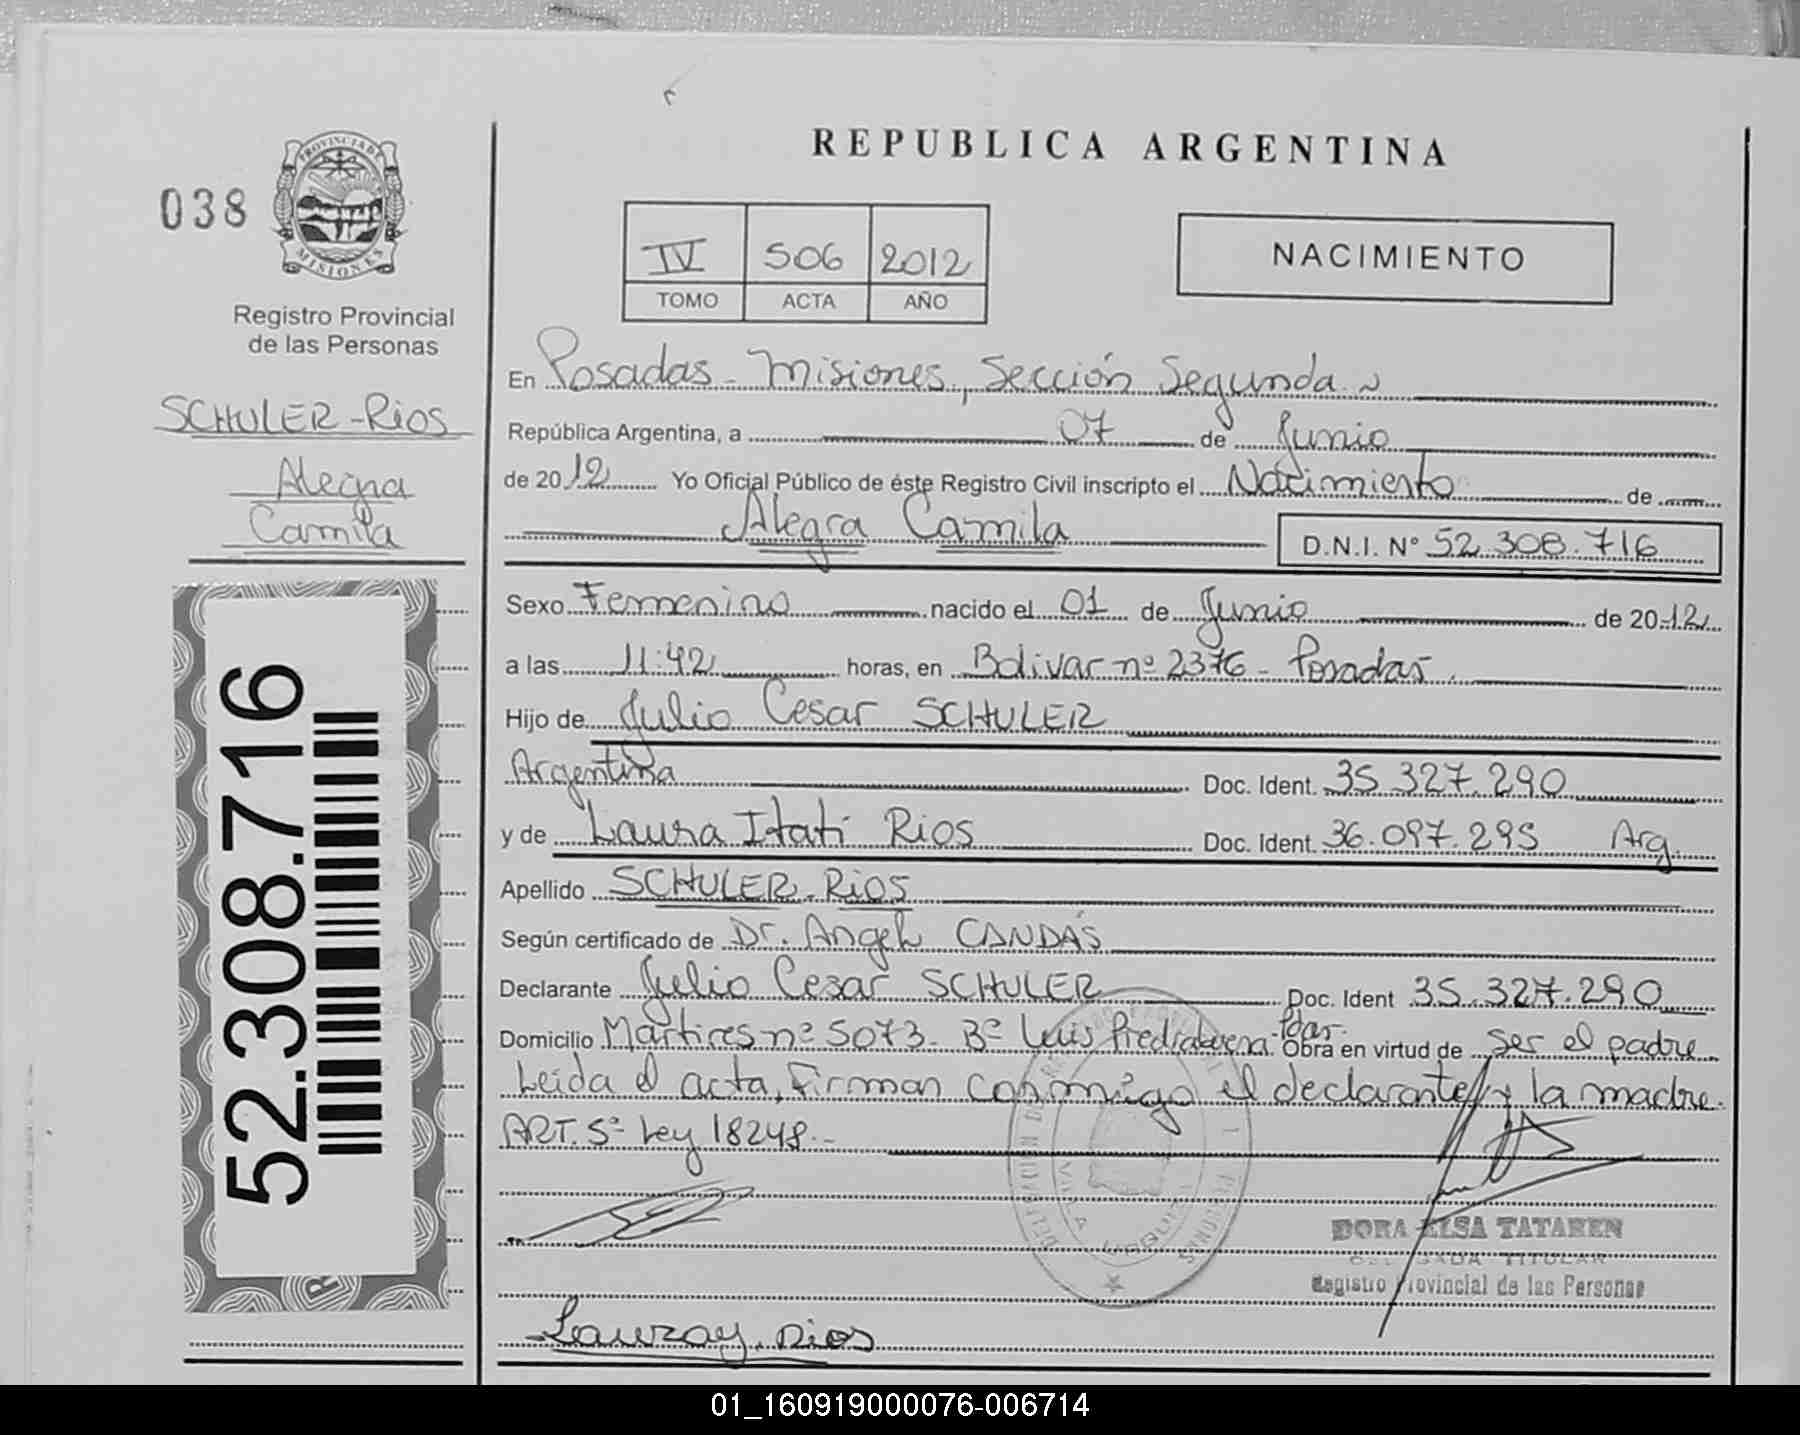 REPUBLICA ARGENTINA
038
PROVINCIA DE
MISIONES
Registro Provincial
de las Personas
SCHULER-Rios
Alegra
Camila
52.308.716
IV 506 2012
TOMO ACTA AÑO
NACIMIENTO
En Posadas - Misiones, Sección Segunda
República Argentina, a 07 de Junio
de 2012 Yo Oficial Público de éste Registro Civil inscripto el Nacimiento de
Alegra Camila D.N.I. Nº 52 308.716
Sexo Femenino nacido el 01 de Junio de 2012
a las 11:42 horas, en Bolivar nº 2376 - Posadas.
Hijo de Julio Cesar SCHULER
Argentina Doc. Ident. 35.327.290
y de Laura Itati Rios Doc. Ident. 36.097.295 Arg.
Apellido SCHULER-Rios
Según certificado de Dr. Angel CANDÁS
Declarante Julio Cesar SCHULER Doc. Ident 35.327.290
Domicilio Martires nº 5073. Bº Luis Piedrabuena - Pdas.- Obra en virtud de ser el padre
Leida el acta, Firman conmigo el declarante y la madre.
ART. 5º Ley 18248.-
DORA ELSA TATAREN
DELEGADA TITULAR
Registro Provincial de las Personas
Laura y. Rios
01_160919000076-006714